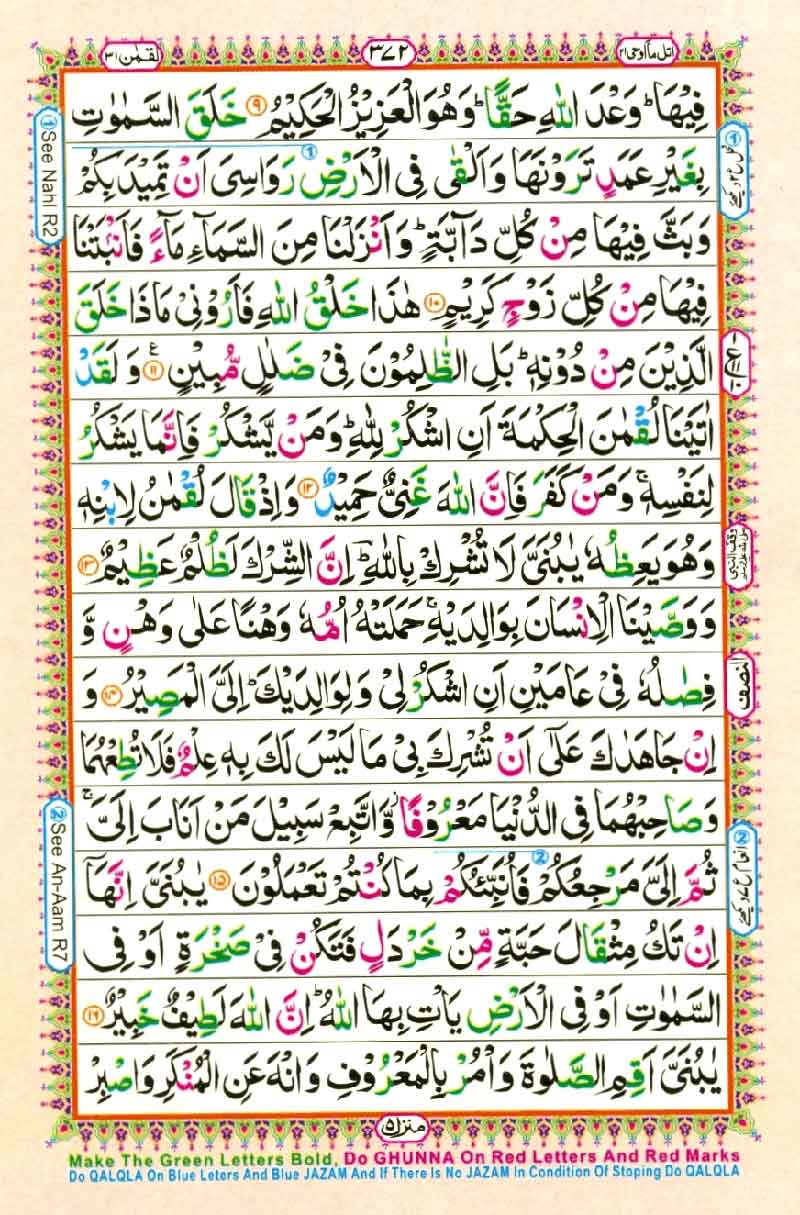 اتل ما اوحی ۲۱
۳۷۲
لقمٰن ۳۱
فِيْهَا ؕ وَعْدَ اللّٰهِ حَقًّا ؕ وَهُوَ الْعَزِيْزُ الْحَكِيْمُ ۹ خَلَقَ السَّمٰوٰتِ
بِغَيْرِ عَمَدٍ تَرَوْنَهَا وَاَلْقٰى فِى الْاَرْضِ رَوَاسِىَ اَنْ تَمِيْدَ بِكُمْ
وَبَثَّ فِيْهَا مِنْ كُلِّ دَآبَّةٍ ؕ وَاَنْزَلْنَا مِنَ السَّمَآءِ مَآءً فَاَنْۢبَتْنَا
فِيْهَا مِنْ كُلِّ زَوْجٍ كَرِيْمٍ ۱۰ هٰذَا خَلْقُ اللّٰهِ فَاَرُوْنِىْ مَاذَا خَلَقَ
الَّذِيْنَ مِنْ دُوْنِهٖ ؕ بَلِ الظّٰلِمُوْنَ فِىْ ضَلٰلٍ مُّبِيْنٍ ۱۱ وَلَقَدْ
اٰتَيْنَا لُقْمٰنَ الْحِكْمَةَ اَنِ اشْكُرْ لِلّٰهِ ؕ وَمَنْ يَّشْكُرْ فَاِنَّمَا يَشْكُرُ
لِنَفْسِهٖ ۚ وَمَنْ كَفَرَ فَاِنَّ اللّٰهَ غَنِىٌّ حَمِيْدٌ ۱۲ وَاِذْ قَالَ لُقْمٰنُ لِابْنِهٖ
وَهُوَ يَعِظُهٗ يٰبُنَىَّ لَا تُشْرِكْ بِاللّٰهِ ؕ اِنَّ الشِّرْكَ لَظُلْمٌ عَظِيْمٌ ۱۳
وَوَصَّيْنَا الْاِنْسَانَ بِوَالِدَيْهِ ۚ حَمَلَتْهُ اُمُّهٗ وَهْنًا عَلٰى وَهْنٍ وَّ
فِصٰلُهٗ فِىْ عَامَيْنِ اَنِ اشْكُرْ لِىْ وَلِوَالِدَيْكَ ؕ اِلَىَّ الْمَصِيْرُ ۱۴ وَ
اِنْ جَاهَدٰكَ عَلٰٓى اَنْ تُشْرِكَ بِىْ مَا لَيْسَ لَكَ بِهٖ عِلْمٌ فَلَا تُطِعْهُمَا
وَصَاحِبْهُمَا فِى الدُّنْيَا مَعْرُوْفًا ؗ وَّاتَّبِعْ سَبِيْلَ مَنْ اَنَابَ اِلَىَّ ۚ
ثُمَّ اِلَىَّ مَرْجِعُكُمْ فَاُنَبِّئُكُمْ بِمَا كُنْتُمْ تَعْمَلُوْنَ ۱۵ يٰبُنَىَّ اِنَّهَاۤ
اِنْ تَكُ مِثْقَالَ حَبَّةٍ مِّنْ خَرْدَلٍ فَتَكُنْ فِىْ صَخْرَةٍ اَوْ فِى
السَّمٰوٰتِ اَوْ فِى الْاَرْضِ يَاْتِ بِهَا اللّٰهُ ؕ اِنَّ اللّٰهَ لَطِيْفٌ خَبِيْرٌ ۱۶
يٰبُنَىَّ اَقِمِ الصَّلٰوةَ وَاْمُرْ بِالْمَعْرُوْفِ وَانْهَ عَنِ الْمُنْكَرِ وَاصْبِرْ
① See Nahl R2
② See An-Aam R7
النصف
منزل ۵
Make The Green Letters Bold, Do GHUNNA On Red Letters And Red Marks
Do QALQLA On Blue Leters And Blue JAZAM And If There Is No JAZAM In Condition Of Stoping Do QALQLA